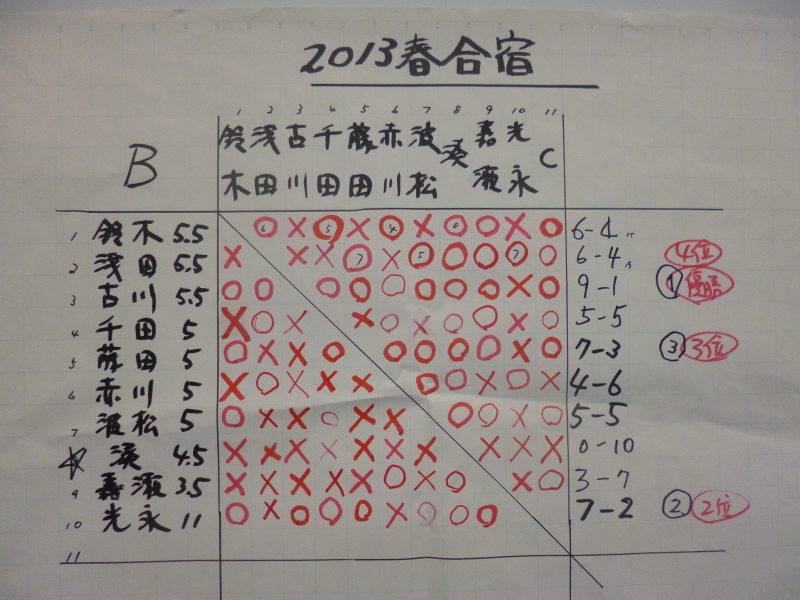 2013春合宿
B
1 2 3 4 5 6 7 8 9 10 11
鈴木 浅田 古川 千田 藤田 赤川 波松 湊 嘉瀬 光永 C
1 鈴木 5.5 ⑥ × ⑤ × ④ × ⑧ ○ × ○ 6-4
2 浅田 6.5 × × × ⑦ × ⑤ ○ ○ ⑦ ○ 6-4 4位
3 古川 5.5 ○ ○ ○ ○ ○ ○ ○ ○ × ○ 9-1 ① 優勝
4 千田 5 × ○ × × ○ × ○ ○ × ○ 5-5
5 藤田 5 ○ × × ○ ○ ○ ○ ○ × ○ 7-3 ③ 3位
6 赤川 5 × ○ × × × ○ ○ × ○ × 4-6
7 波松 5 ○ × × ○ × × ○ ○ × ○ 5-5
☆ 湊 4.5 × × × × × × × × × × 0-10
9 嘉瀬 3.5 × × × × × ○ × ○ × ○ 3-7
10 光永 11 ○ × ○ ○ ○ × ○ ○ ○ 7-2 ② 2位
11